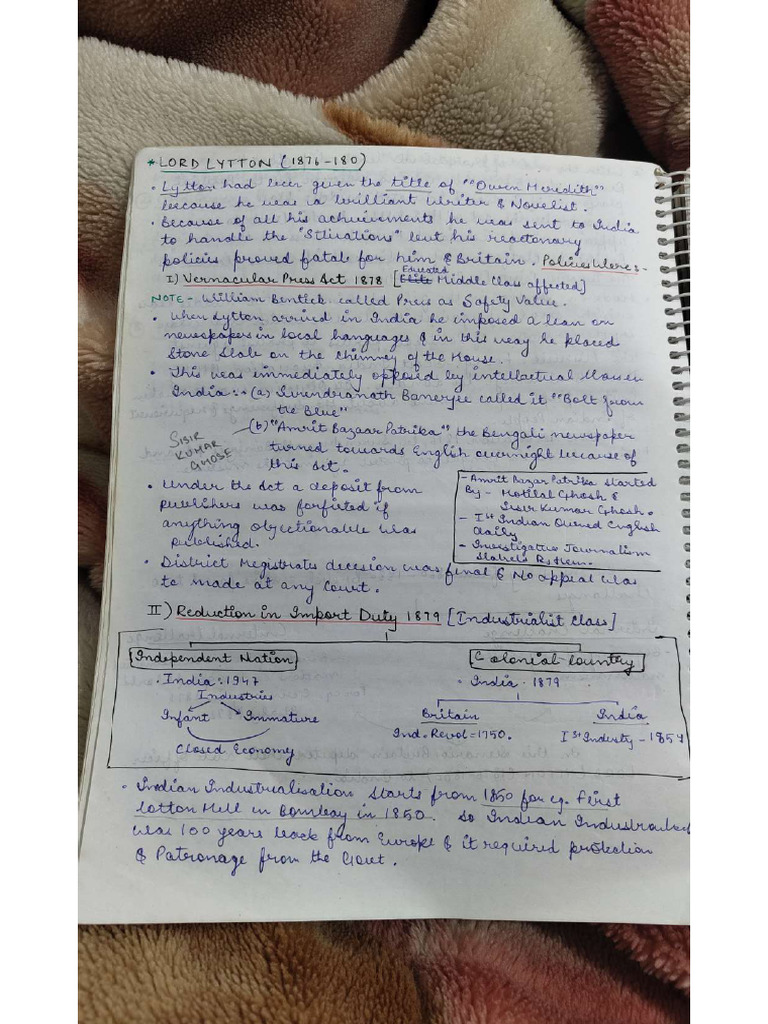 * LORD LYTTON (1876-180)
• Lytton had been given the title of ""Owen Meredith""
because he was a brilliant Writer & Novelist.
• Because of all his achievements he was sent to India
to handle the "Stiuations" but his reactonary
policies proved fatale for him & Britain. Policies Were :-
I) Vernacular Press Act 1878 [Elite Educated Middle Class affected]
NOTE - William Bentick called Press as Safety Value.
• When Lytton arrived in India he imposed a ban on
newspapers in local hanguages & in this way he placed
Stone Slale on the Chimney of the House.
• This was immediately opposed by intellactual
India :- (a) Surendranath Banerjee called it ""Bolt from
the Blue""
SISIR KUMAR GHOSE
(b) "Amrit Bazaar Patrika" the Bengali newspaper
turned towards English overnight because of
this Act.
• Under the Act a deposit from
publishers was forfieted if
anything objectionable was
published.
- Amrit Bazar Patrika started
By - Motilal Ghosh &
Sisir Kumar Ghosh.
- Ist Indian Owned English
daily
- Investigative Journalism
• District Megistrates decesion was final & No appeal was
to made at any Court.
II) Reduction in Import Duty 1879 [Industrialist Class]
Independent Nation
Colonial Country
• India : 1947
• India - 1879
Industries
Infant Immature
Closed Economy
Britain India
Ind. Revol = 1750. Ist Industy - 1854
• Indian Industrialisation starts from 1850 for eg. First
Cotton Mell in Bombay in 1850. So Indian
was 100 years back from Europe & it required protection
& Patronage from the Govt.